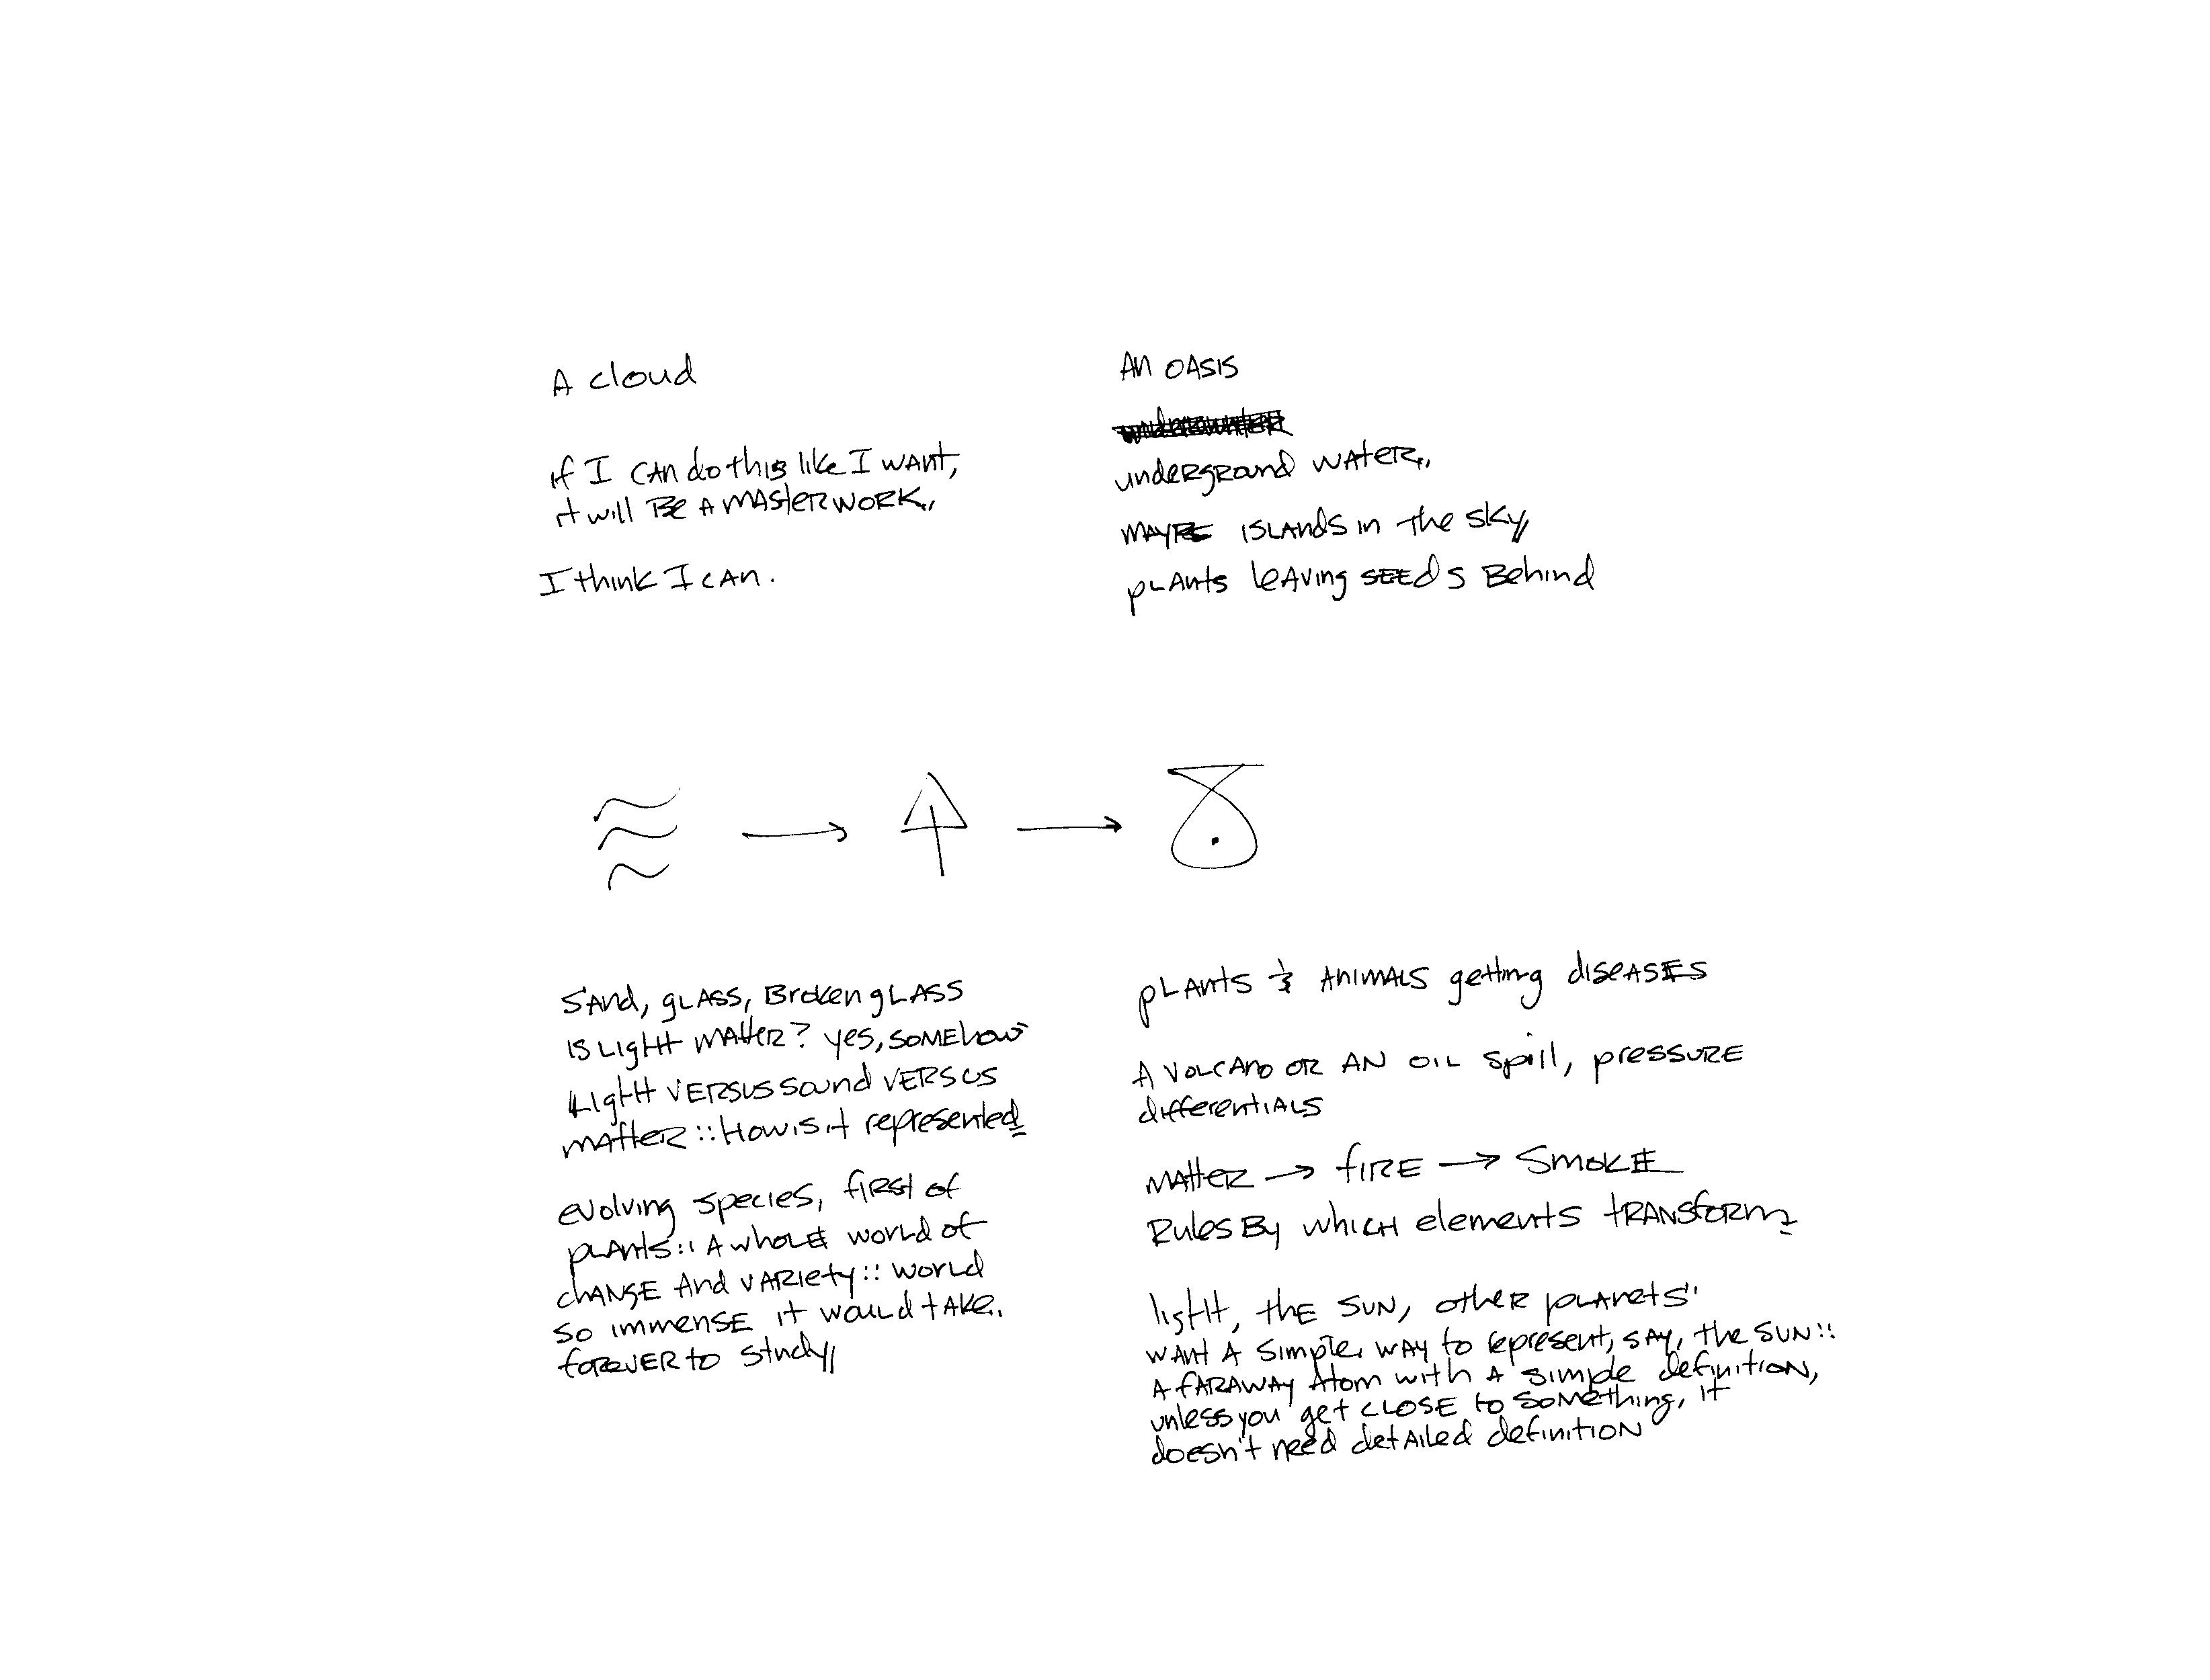 A cloud
if I can do this like I want,
it will be a masterwork..
I think I can.
An oasis
underground water..
maybe islands in the sky
plants leaving seeds behind
→ →
sand, glass, broken glass
is light matter? yes, somehow
light versus sound versus
matter :: How is it represented
evolving species, first of
plants :: A whole world of
change and variety :: world
so immense it would take
forever to study
plants & animals getting diseases
A volcano or an oil spill, pressure
differentials
matter → fire → smoke
Rules by which elements transform
light, the sun, other planets
want a simple way to represent, say, the sun ::
A faraway atom with a simple definition,
unless you get close to something, it
doesn't need detailed definition